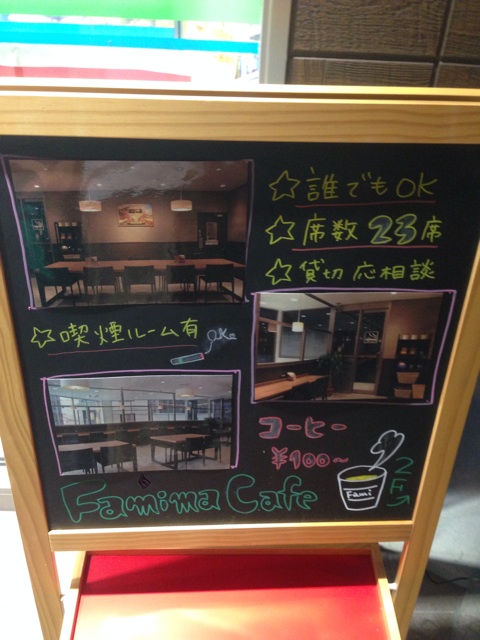 ☆誰でもOK
☆席数23席
☆貸切応相談
☆喫煙ルーム有
コーヒー
¥100〜
Famima Cafe
Fami
2F